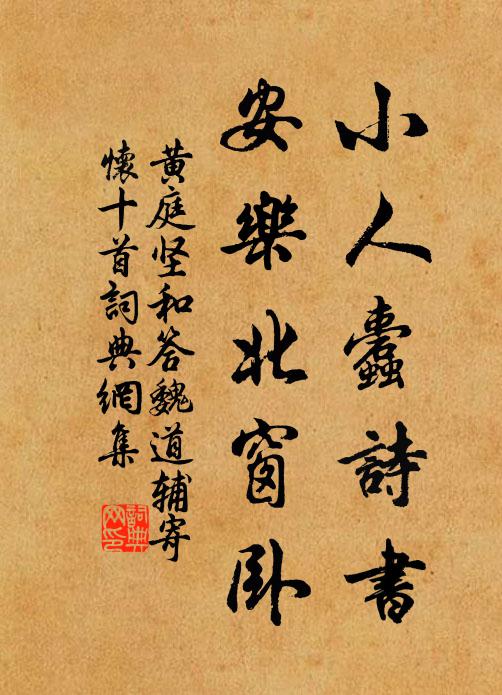 小人蠹詩書
安樂北窗卧
黄庭坚和答魏道辅寄
懷十首詞典網集
詞典网印